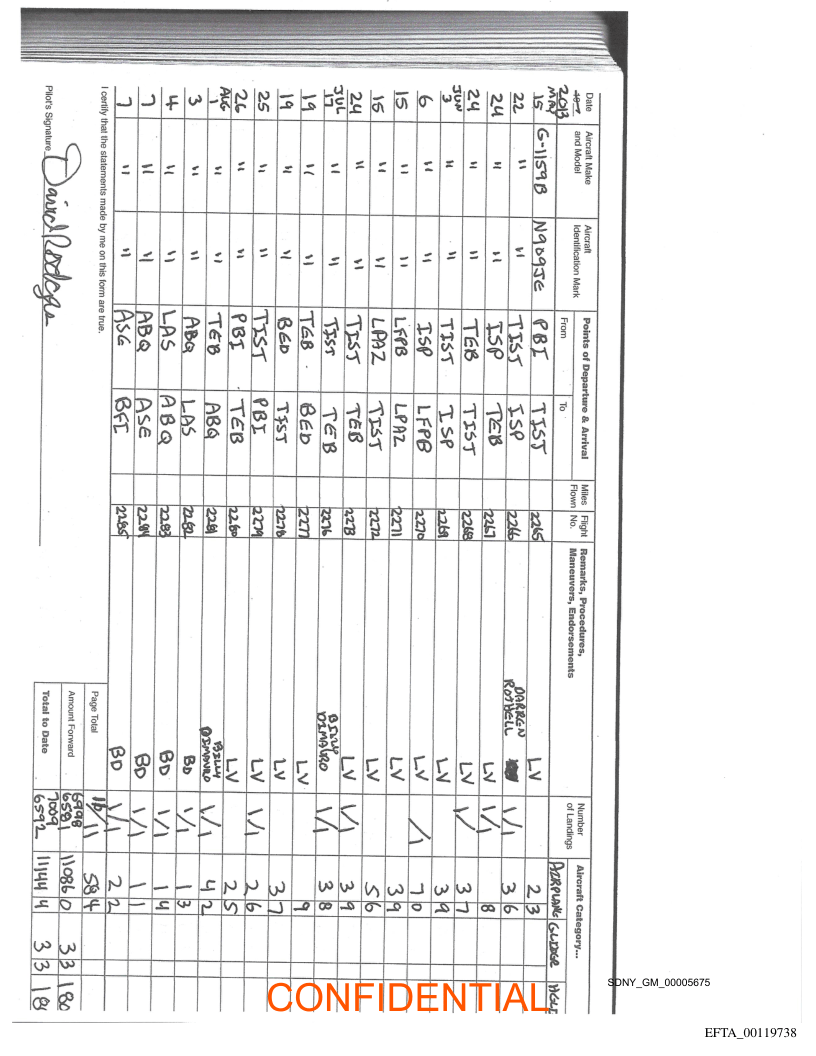 Date Aircraft Make and Model Aircraft Identification Mark Points of Departure & Arrival From To Miles Flown Flight No. Remarks, Procedures, Maneuvers, Endorsements Number of Landings Aircraft Category...
2013 AIRPLANE GLIDER
MAY 15 G-1159B N909JE PBI TIST 2265 LV 2 3
22 " " TIST ISP 2266 DARREN ROTHELL 1/1 3 6
24 " " ISP TEB 2267 LV 1/1 8
24 " " TEB TIST 2268 LV 1/ 3 7
JUN 3 " " TIST ISP 2269 LV 3 9
6 " " ISP LFPB 2270 LV /1 7 0
15 " " LFPB LPAZ 2271 LV 3 9
15 " " LPAZ TIST 2272 LV 5 6
24 " " TIST TEB 2273 LV 1/1 3 9
JUL 17 " " TIST TEB 2276 BILLY DIMAURO 1/1 3 8
19 " " TEB BED 2277 LV 9
19 " " BED TIST 2278 LV 3 7
25 " " TIST PBI 2279 LV 1/1 2 6
26 " " PBI TEB 2280 LV 2 5
AUG 1 " " TEB ABQ 2281 BILLY DIMAURO 1/1 4 2
3 " " ABQ LAS 2282 BD 1/1 1 3
4 " " LAS ABQ 2283 BD 1/1 1 4
7 " " ABQ ASE 2284 BD 1/1 1 1
7 " " ASE BFI 2285 BD 1/1 2 2
I certify that the statements made by me on this form are true.
Page Total 16/11 58 4
Amount Forward 6998 6581 11086 0 3 3 180
Total to Date 7009 6592 11144 4 3 3 18
Pilot's Signature David Rodgers
CONFIDENTIAL
SDNY_GM_00005675
EFTA_00119738